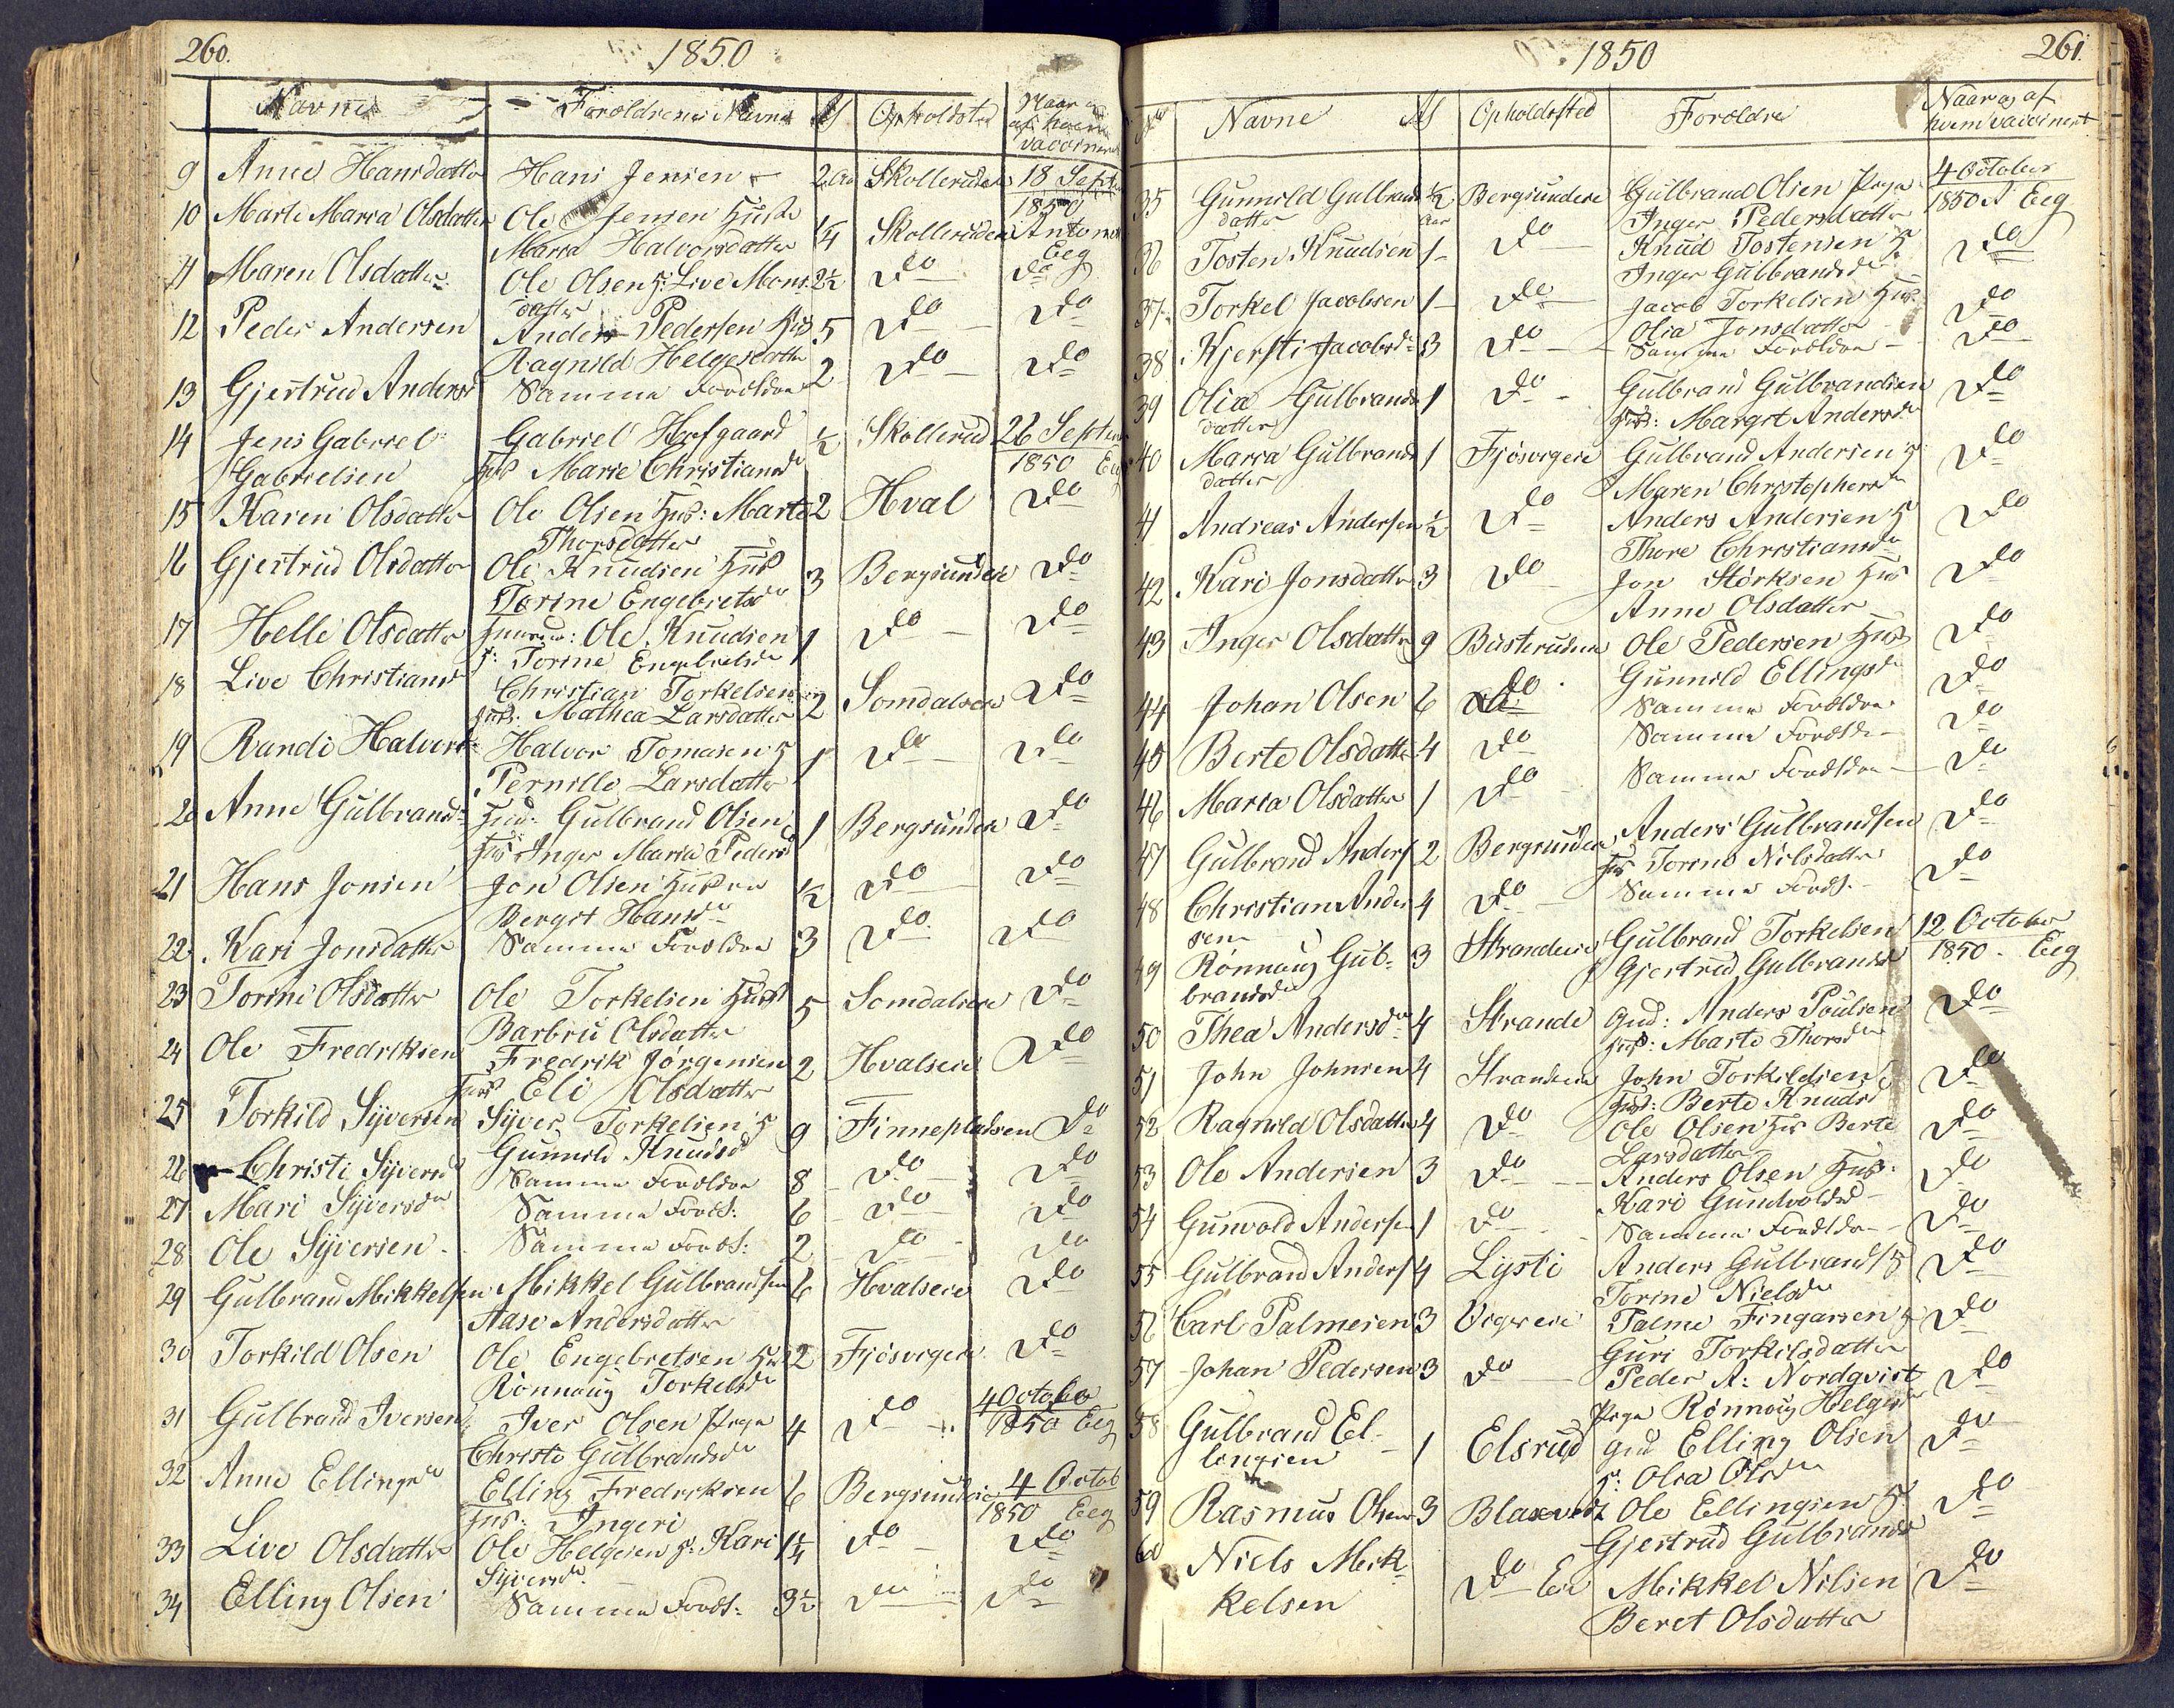 260.
1850
Navne Forældrenes Navne Opholdsted Naar og af hvem vaccineret
9 Anne Hansdatter Hans Jensen 2 Skolleruden 18 Sept
10 Marte Maria Olsdatter Ole Jensen Hustr 1850
Maria Halvorsdatter 1/4 Skolleruden Anton Eeg
11 Maren Olsdatter Ole Olsen H: Live Mons 2 1/2 Do Do
datter
12 Peder Andersen Anders Pedersen Hus 5 Do Do
Ragnild Helgesdatter
13 Gjertrud Andersd Samme Forældre 2 Do Do
14 Jens Gabriel Gabriel Hofgaard 1/2 Skollerud 26 Septem
Gabrielsen Hus Marie Christiansd 1850 Eeg
15 Karen Olsdatter Ole Olsen Hus: Marte 2 Hval Do
Thorsdatter
16 Gjertrud Olsdatter Ole Knudsen Hus 3 Bergsundeie Do
Torine Engebretsd
17 Helle Olsdatter Ole Knudsen 1 Do Do
H: Torine Engebretsd
18 Live Christiansd Christian Torkelsen 2 Somdalseie Do
Hus: Mathea Larsdatter
19 Randi Halvorsd Halvor Tomasen H 1 Do Do
Pernille Larsdatter
20 Anne Gulbrandsd Gulbrand Olsen 1 Bergsundeie Do
Hus Inger Maria Pedersd
21 Hans Jonsen Jon Olsen Hustru 1/2 Do Do
Bergit Hansd
22 Kari Jonsdatter Samme Forældre 3 Do Do
23 Torine Olsdatter Ole Torkelsen Hust 5 Somdalseie Do
Barbru Olsdatter
24 Ole Fredriksen Fredrik Jörgensen 2 Hvalseie Do
Hus Eli Olsdatter
25 Torkild Syversen Syver Torkelsen H 9 Finnepladsen Do
Gunnild Knudsd
26 Christi Syversd Samme Forældre 8 Do Do
27 Mari Syversd Samme Foræl: 6 Do Do
28 Ole Syversen Samme Foræl: 2 Do Do
29 Gulbrand Mikkelsen Mikkel Gulbrandsen 6 Hvalseie Do
Aase Andersdatter
30 Torkild Olsen Ole Engebretsen Hus 2 Fjösvigeie Do
Rönnaug Torkelsd
31 Gulbrand Iversen Iver Olsen Pige 4 Do 4 October
Christi Gulbrandsd 1850 Eeg
32 Anne Ellingsd Elling Fredriksen 6 Bergsundeie 4 Octob
Hus: Ingeri 1850 Eeg
33 Live Olsdatter Ole Helgesen H: Kari 1 1/4 Do Do
Syversd
34 Elling Olsen Samme Foræl: 3 1/2 Do Do
1850
261.
No Navne Opholdssted Forældre Naar og af hvem vaccineret
35 Gunnild Gulbrands 1/2 Bergsundeie Gulbrand Olsen Pige 4 October
datter Aar Inger Pedersdatter 1850 A Eeg
36 Tosten Knudsen 1 Do Knud Tostensen H Do
Inger Gulbrandsd
37 Torkel Jacobsen 1 Do Jacob Torkelsen Hus Do
Olia Jonsdatter
38 Kjersti Jacobsd 3 Do Samme Forældre Do
39 Olia Gulbrands 1 Do Gulbrand Gulbrandsen Do
datter Hus: Margit Andersd
40 Maria Gulbrands 1 Fjösvigeie Gulbrand Andersen H Do
datter Maren Christophersd
41 Andreas Andersen 1/2 Do Anders Andersen H Do
Thore Christiansd
42 Kari Jonsdatter 3 Do Jon Störksen Hus Do
Anne Olsdatter
43 Inger Olsdatter 9 Busteruden Ole Pedersen Hus Do
Gunnild Ellingsd
44 Johan Olsen 6 Do Samme Forældre Do
45 Berte Olsdatter 4 Do Samme Foræld Do
46 Maria Olsdatter 1 Do Samme Forældre Do
47 Gulbrand Anders 2 Bergsundeie Anders Gulbrandsen Do
Hus Torine Nilsdatter
48 Christian Ander 4 Do Samme Foræl. Do
sen
49 Rönnaug Gul- 3 Strandeie Gulbrand Torkelsen 12 October
brandsd Gjertrud Gulbrandsd 1850. Eeg
50 Thea Andersd 4 Strande Gud: Anders Poulsen Do
Hus: Marte Thorsd
51 John Johnsen 4 Strandeie John Torkildsen Do
Hus: Berte Knudsd
52 Ragnild Olsdatter 4 Do Ole Olsen Hus Berte Do
Larsdatter
53 Ole Andersen 3 Do Anders Olsen Hus: Do
Kari Gundvoldsd
54 Gunvold Andersen 1 Do Samme Forældre Do
55 Gulbrand Anders 4 Lysti Anders Gulbrands H Do
Torine Nielsd
56 Carl Palmesen 3 Vigereie Palme Fingarsen H Do
Guri Torkilsdatter
57 Johan Pedersen 3 Do Peder A: Nordqvist Do
Pige Rönnaug Helgesd
58 Gulbrand El- 1 Elsrud Gud Elling Olsen Do
lingsen H: Olia Olsd
59 Rasmus Olsen 3 Blaxvedt Ole Ellingsen H Do
Gjertrud Gulbrandsd
60 Niels Mik- Do Eie Mikkel Nilsen Do
kelsen Beret Olsdatter